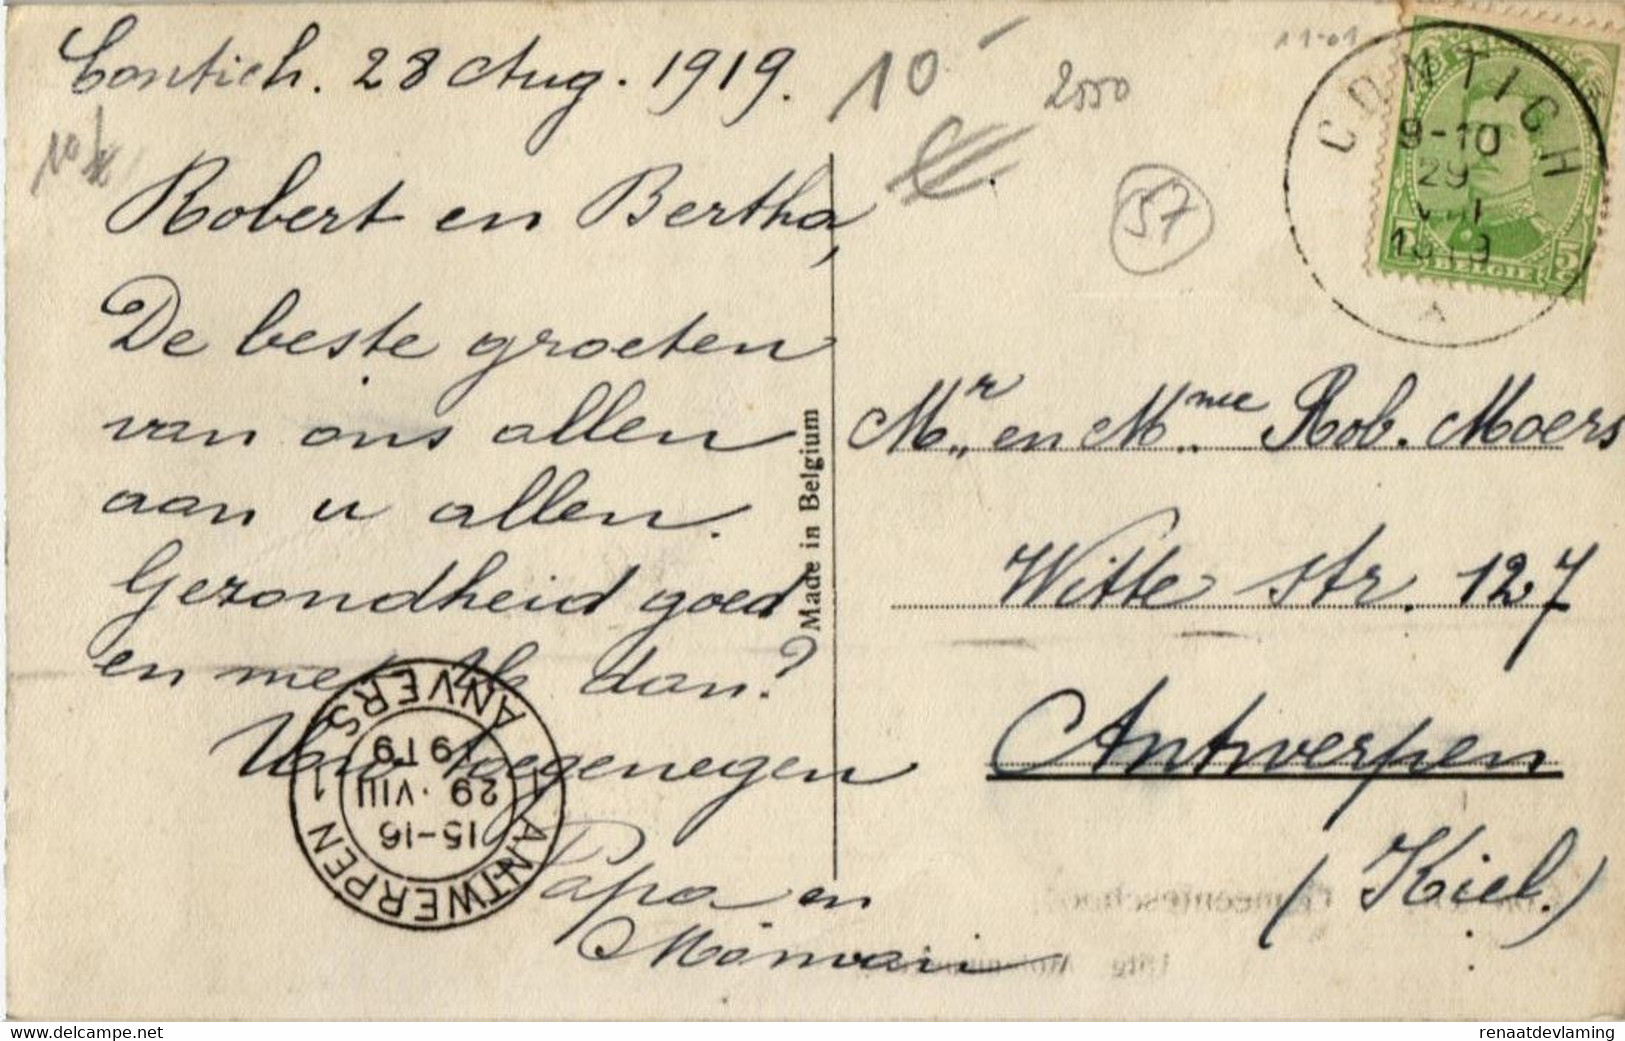 Contich. 28 Aug. 1919.
10
2550
11-01
57
Robert en Bertha,
De beste groeten
van ons allen
aan u allen.
Gezondheid goed
en met
dan?
Uw toegenegen
Papa en
Made in Belgium
CONTICH
9-10
29
VIII
1919
BELGIE
5
Mr. en Mme Rob. Moers
Witte str. 127
Antwerpen
(Kiel.)
Gemeenteschool
1 ANTWERPEN 1
ANVERS
15-16
29 · VIII
1919
delcampe.net
renaatdevlaming